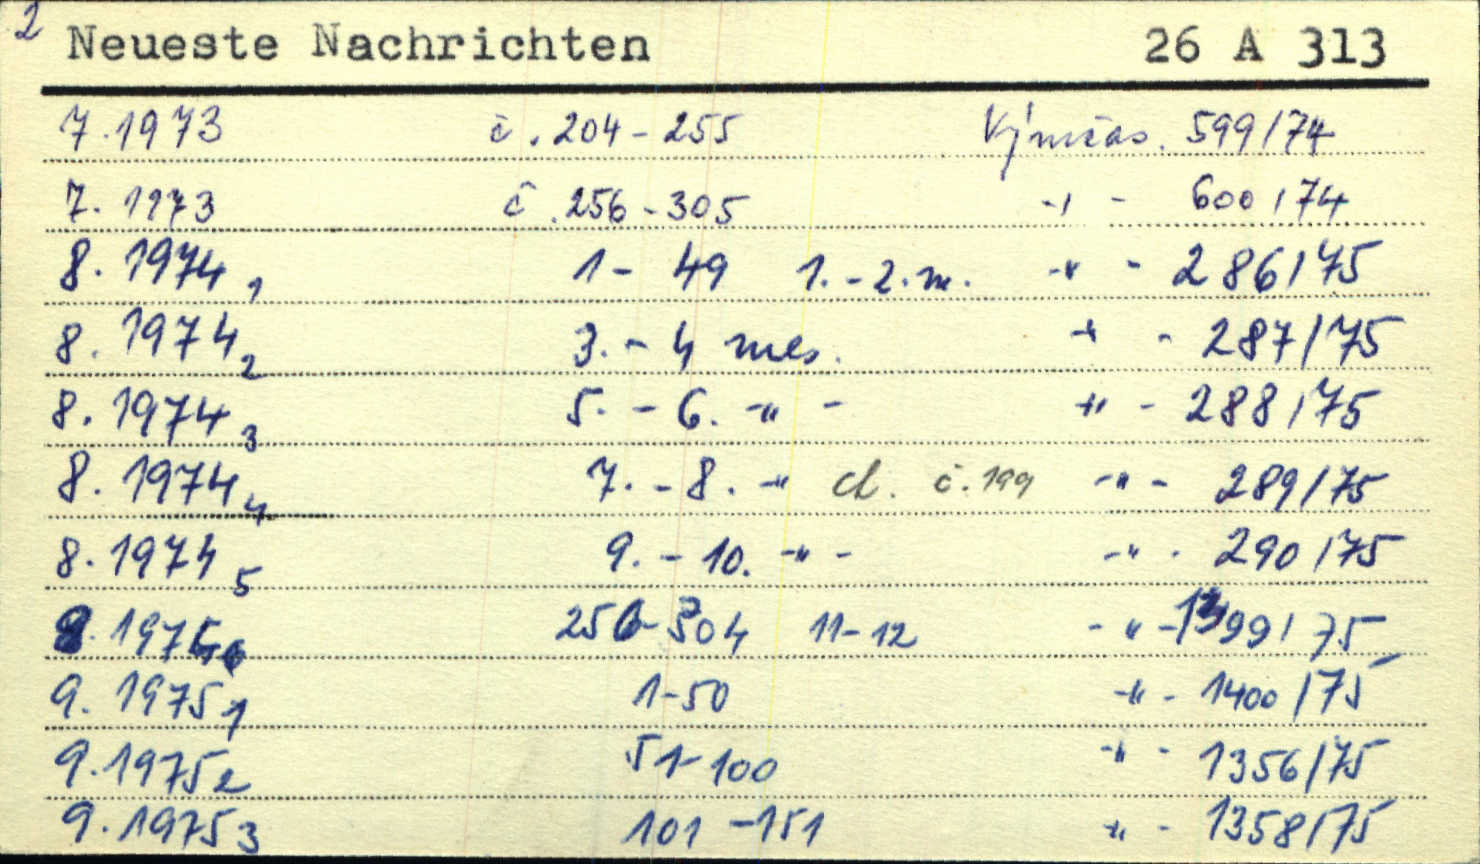 2 Neueste Nachrichten 26 A 313
7.1973 č. 204-255 Výmčas. 599/74
7. 1973 č. 256-305 -"- 600/74
8. 1974 1 1- 49 1.-2.m. -"- 286/75
8. 1974 2 3.-4 mes. -"- 287/75
8. 1974 3 5.-6. -"- -"- 288/75
8. 1974 4 7.-8. -" ch. č.199 -"- 289/75
8. 1974 5 9.-10. -"- -"- 290/75
8. 1974 6 256-304 11-12 -"- 1399/75
9. 1975 1 1-50 -"- 1400/75
9. 1975 2 51-100 -"- 1356/75
9. 1975 3 101-151 -"- 1358/75